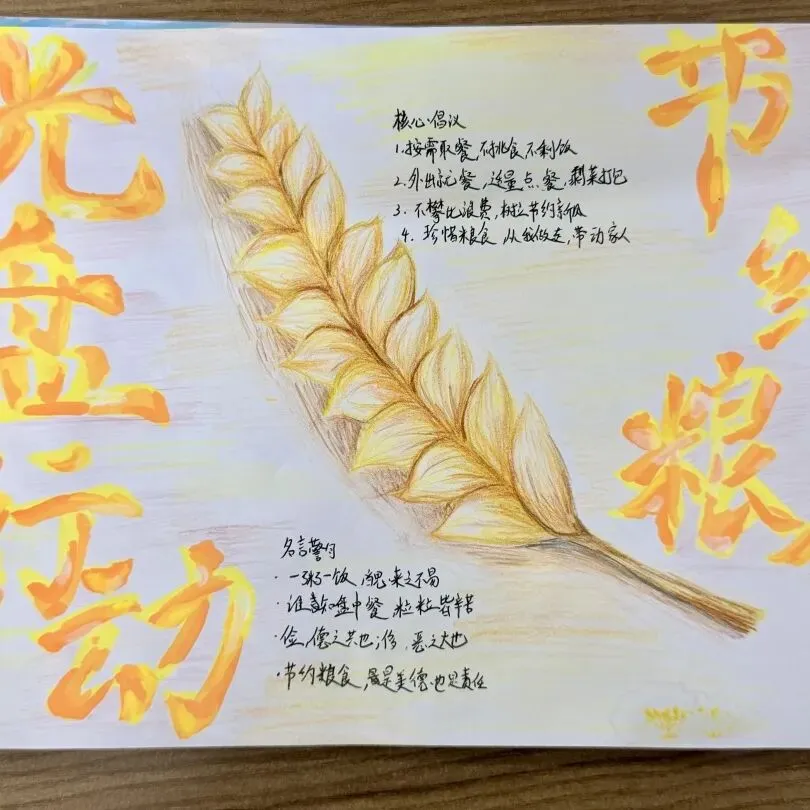 光盘行动
节
粮
核心倡议
1.按需取餐,不挑食,不剩饭
2.外出就餐,适量点餐,剩菜打包
3.不攀比浪费,树立节约新风
4.珍惜粮食,从我做起,带动家人
名言警句
·一粥一饭,来之不易
·谁知盘中餐,粒粒皆辛苦
·俭,德之共也;侈,恶之大也
·节约粮食,是美德,也是责任